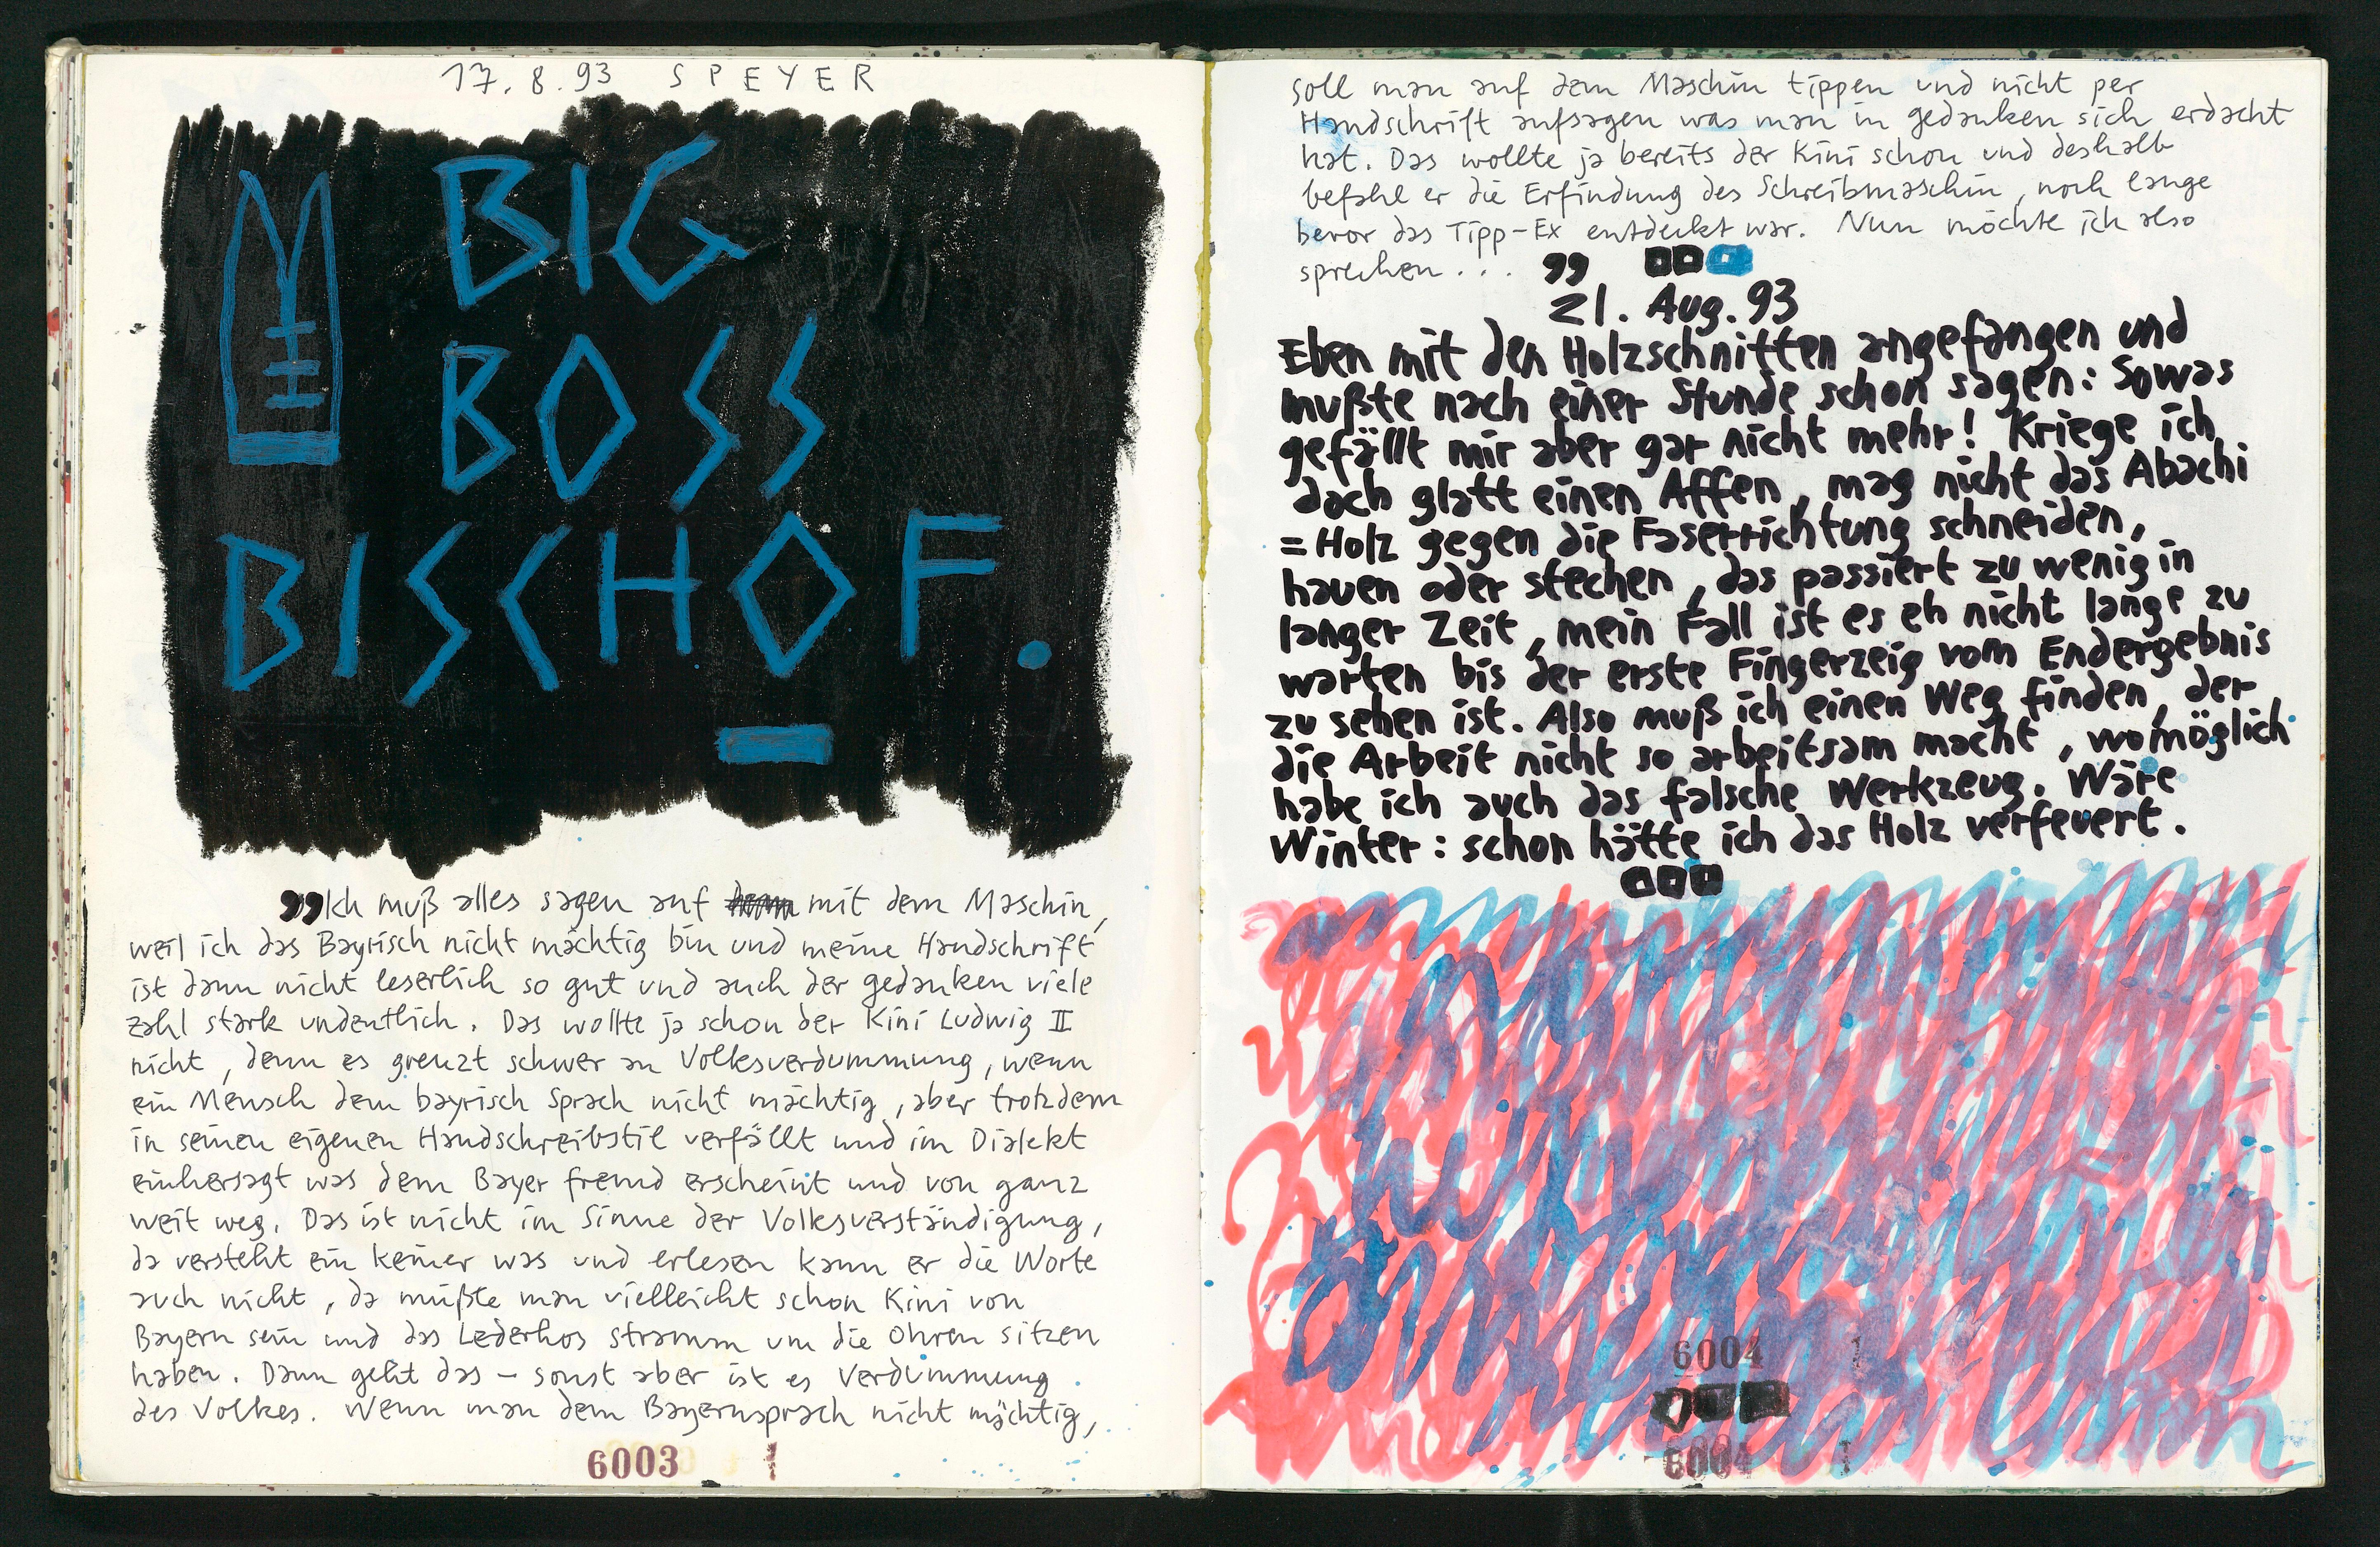 17.8.93 SPEYER
BIG
BOSS
BISCHOF.
„Ich muß alles sagen auf mit dem Maschin,
weil ich das Bayrisch nicht mächtig bin und meine Handschrift
ist dann nicht leserlich so gut und auch der gedanken viele
zahl stark undeutlich. Das wollte ja schon der Kini Ludwig II
nicht, denn es grenzt schwer an Volksverdummung, wenn
ein Mensch dem bayrisch Sprach nicht mächtig, aber trotzdem
in seinen eigenen Handschreibstil verfällt und im Dialekt
einhersagt was dem Bayer fremd erscheint und von ganz
weit weg. Das ist nicht im Sinne der Volksverständigung,
da versteht ein keiner was und erlesen kann er die Worte
auch nicht, da müßte man vielleicht schon Kini von
Bayern sein und das Lederhos stramm um die Ohren sitzen
haben. Dann geht das – sonst aber ist es Verdummung
des Volkes. Wenn man dem Bayernsprach nicht mächtig,
6003 1
soll man auf dem Maschin tippen und nicht per
Handschrift aufsagen was man in gedanken sich erdacht
hat. Das wollte ja bereits der Kini schon und deshalb
befahl er die Erfindung des Schreibmaschin, noch lange
bevor das Tipp-Ex entdeckt war. Nun möchte ich also
sprechen... "
21. Aug. 93
Eben mit den Holzschnitten angefangen und
mußte nach einer Stunde schon sagen: Sowas
gefällt mir aber gar nicht mehr! Kriege ich
doch glatt einen Affen, mag nicht das Abachi
=Holz gegen die Faserrichtung schneiden,
hauen oder stechen, das passiert zu wenig in
langer Zeit, mein Fall ist es eh nicht lange zu
warten bis der erste Fingerzeig vom Endergebnis
zu sehen ist. Also muß ich einen Weg finden, der
die Arbeit nicht so arbeitsam macht, womöglich
habe ich auch das falsche Werkzeug. Wäre
Winter: schon hätte ich das Holz verfeuert.
6004 1
6004 1